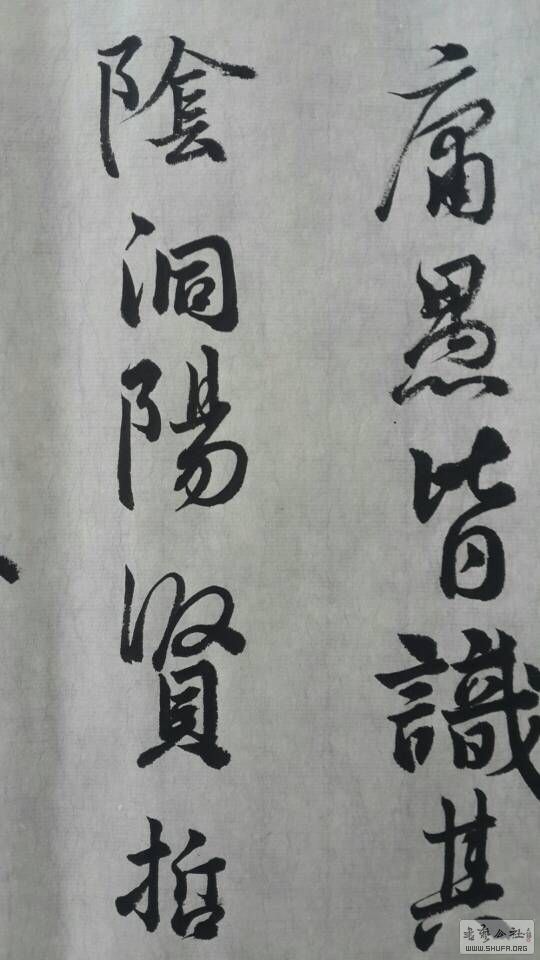 庸愚皆識其
陰洞陽賢哲
書藝公社
WWW.SHUFA.ORG